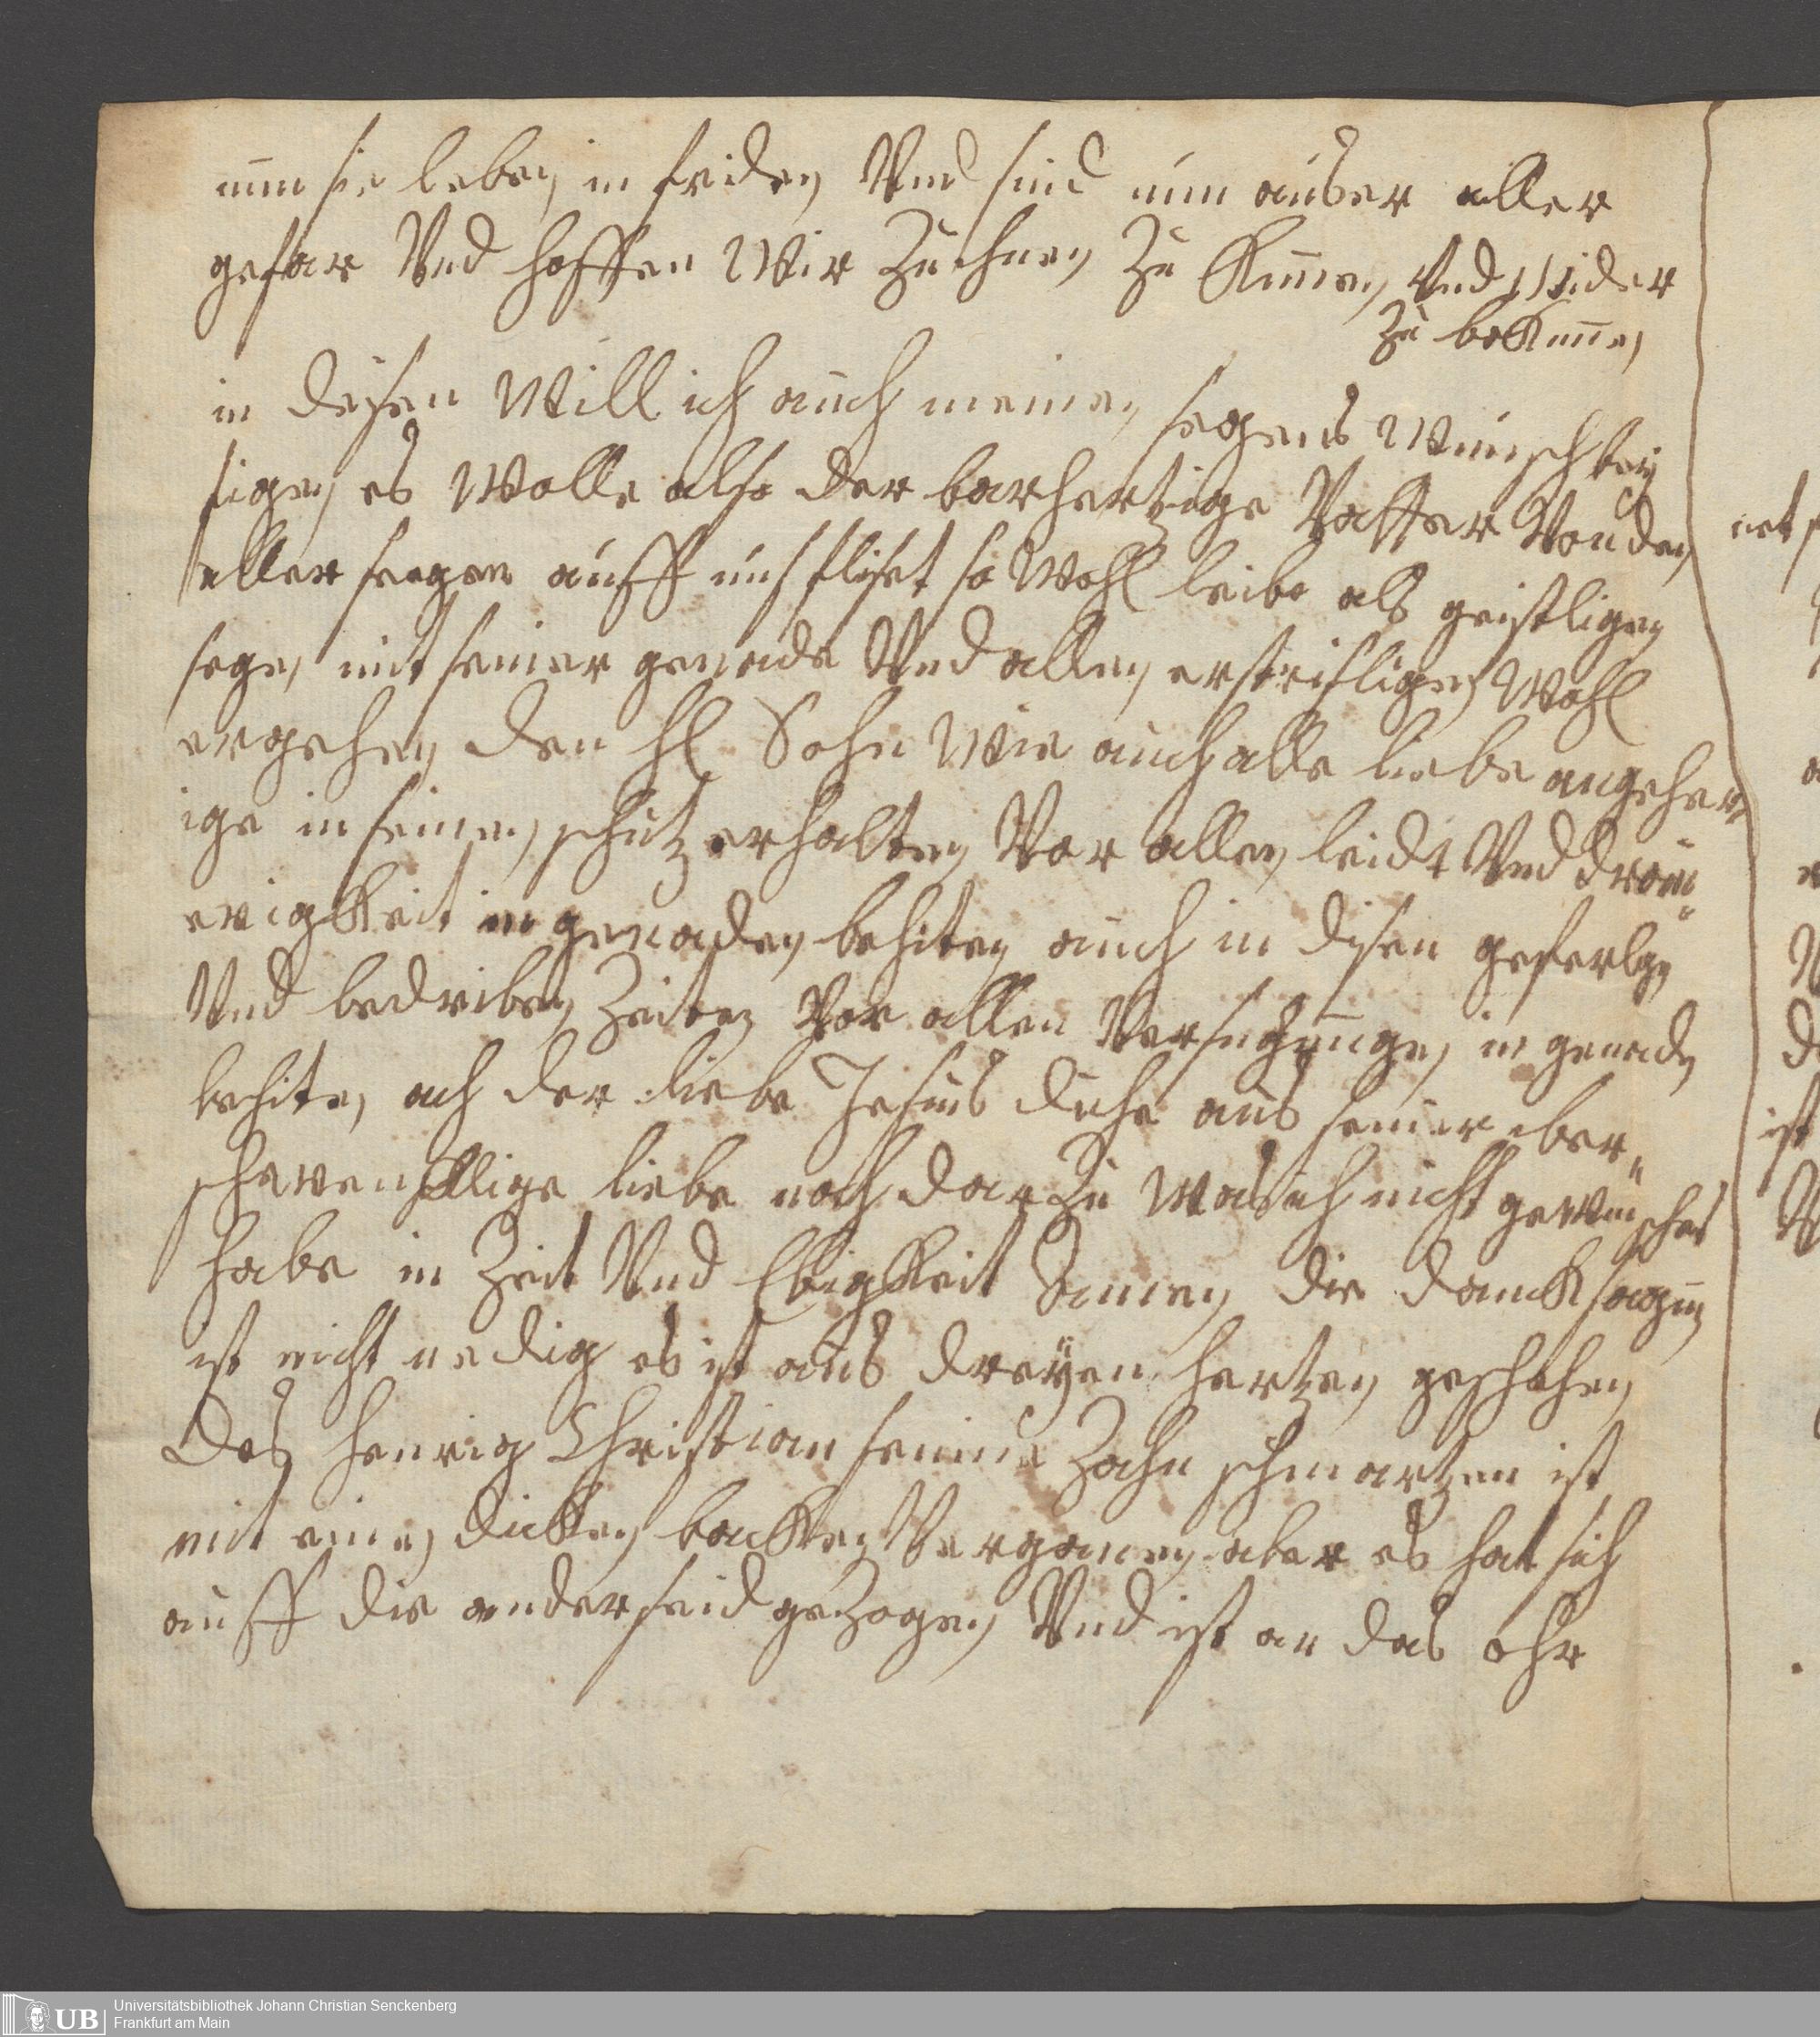 nun sie leben in friden Und sind nun auser aller
gefar Und hoffen Wir Zu ihnen Zu Kumen Und Wider
Zu beKumen
in disen Will ich auch meinen segens Wunsch bey
figen es Wolle also der barhertzige Vatter Von den
aller seegen auff uns fliset so Wohl leibe als geistligen
segen mit seiner genade Und allen ersprisligen Wohl
ergehen den hl Sohn Wie auch alle liebe angeher
ige in seinen schutz erhalten Vor allen leidt Und drau
erigKeit in genaden behiten auch in disen geferlgen
Und bedriben Zeiten Vor allen Versuchunge in genaden
behiten ach der liebe Jesus duhe aus seiner iber
schwenllige liebe noch dar Zu Was ich nicht gewünschet
habe in Zeit Und EbigKeit Damen die danckKsagung
ist nicht nedig es ist aus dreyen hertzen geschehen
Des henrig Christian seine Zahn schmartzen ist
mit einen dicKen backKen Vergangen aber es hat sich
auff die ander seid geZogen Und ist an das ohr
net
ist
Universitätsbibliothek Johann Christian Senckenberg
Frankfurt am Main
UB